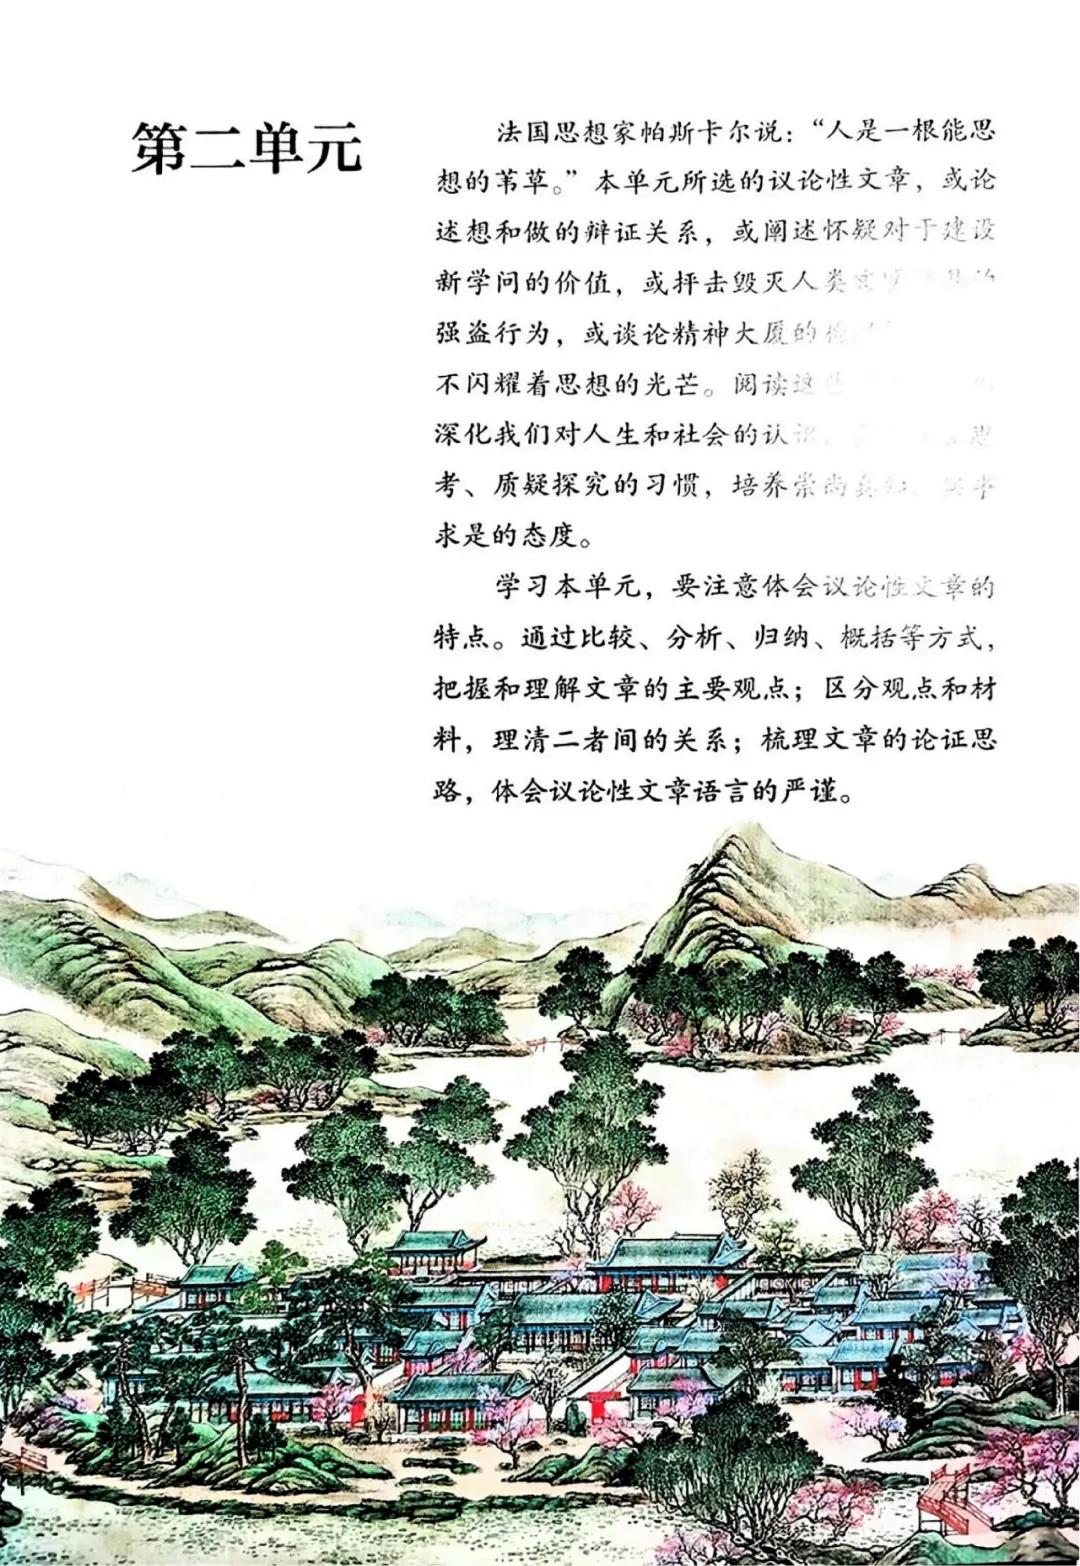 第二单元
法国思想家帕斯卡尔说：“人是一根能思
想的苇草。”本单元所选的议论性文章，或论
述想和做的辩证关系，或阐述怀疑对于建设
新学问的价值，或抨击毁灭人类文
强盗行为，或谈论精神大厦的
不闪耀着思想的光芒。阅读这些
深化我们对人生和社会的认识，思
考、质疑探究的习惯，培养崇尚真知、实事
求是的态度。
学习本单元，要注意体会议论性文章的
特点。通过比较、分析、归纳、概括等方式，
把握和理解文章的主要观点；区分观点和材
料，理清二者间的关系；梳理文章的论证思
路，体会议论性文章语言的严谨。